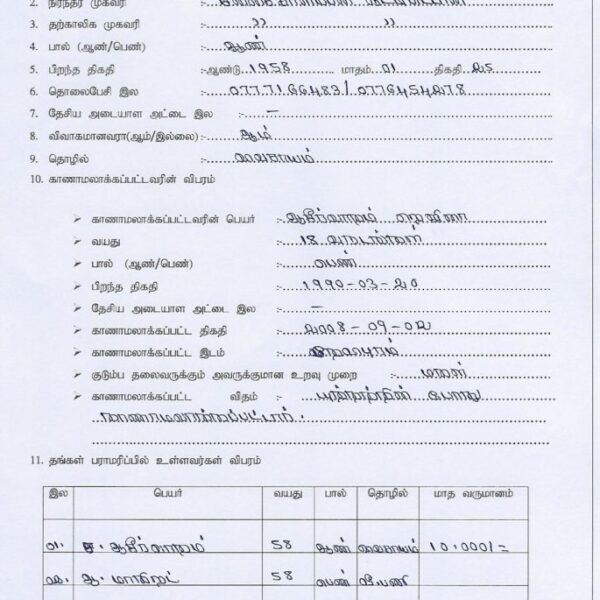 2. நிரந்தர முகவரி :-
3. தற்காலிக முகவரி :- ,, ,,
4. பால் (ஆண்/பெண்) :- ஆண்
5. பிறந்த திகதி :-ஆண்டு 1958 மாதம் 01 திகதி 25
6. தொலைபேசி இல :- 0777166483/0776454278
7. தேசிய அடையாள அட்டை இல :- –
8. விவாகமானவரா(ஆம்/இல்லை) :- ஆம்
9. தொழில் :- விவசாயம்
10. காணாமலாக்கப்பட்டவரின் விபரம்
➤ காணாமலாக்கப்பட்டவரின் பெயர் :- ஆசீர்வாதம்
➤ வயது :- 18 வருடங்கள்
➤ பால் (ஆண்/பெண்) :- பெண்
➤ பிறந்த திகதி :- 1990-03-20
➤ தேசிய அடையாள அட்டை இல :- –
➤ காணாமலாக்கப்பட்ட திகதி :- 2008-09-02
➤ காணாமலாக்கப்பட்ட இடம் :-
➤ குடும்ப தலைவருக்கும் அவருக்குமான உறவு முறை :- மகள்
➤ காணாமலாக்கப்பட்ட விதம் :- யுத்தத்தின் போது
காணாமலாக்கப்பட்டார்.
11. தங்கள் பராமரிப்பில் உள்ளவர்கள் விபரம்
இல பெயர் வயது பால் தொழில் மாத வருமானம்
01. ச. ஆசீர்வாதம் 58 ஆண் விவசாயம் 10.000/=
02. ஆ. மாகிறட் 58 பெண் வீ.பணி